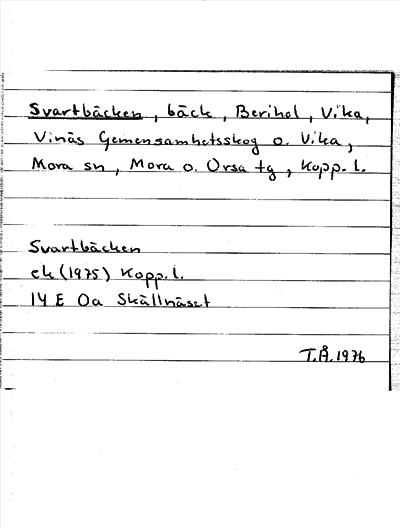 Svartbäcken, bäck, Berihol, Vika,
Vinäs Gemensamhetsskog o. Vika,
Mora sn, Mora o. Orsa tg, Kopp. l.
Svartbäcken
ek (1975) Kopp. l.
14 E 0a Skällnäset
T.Å. 1976